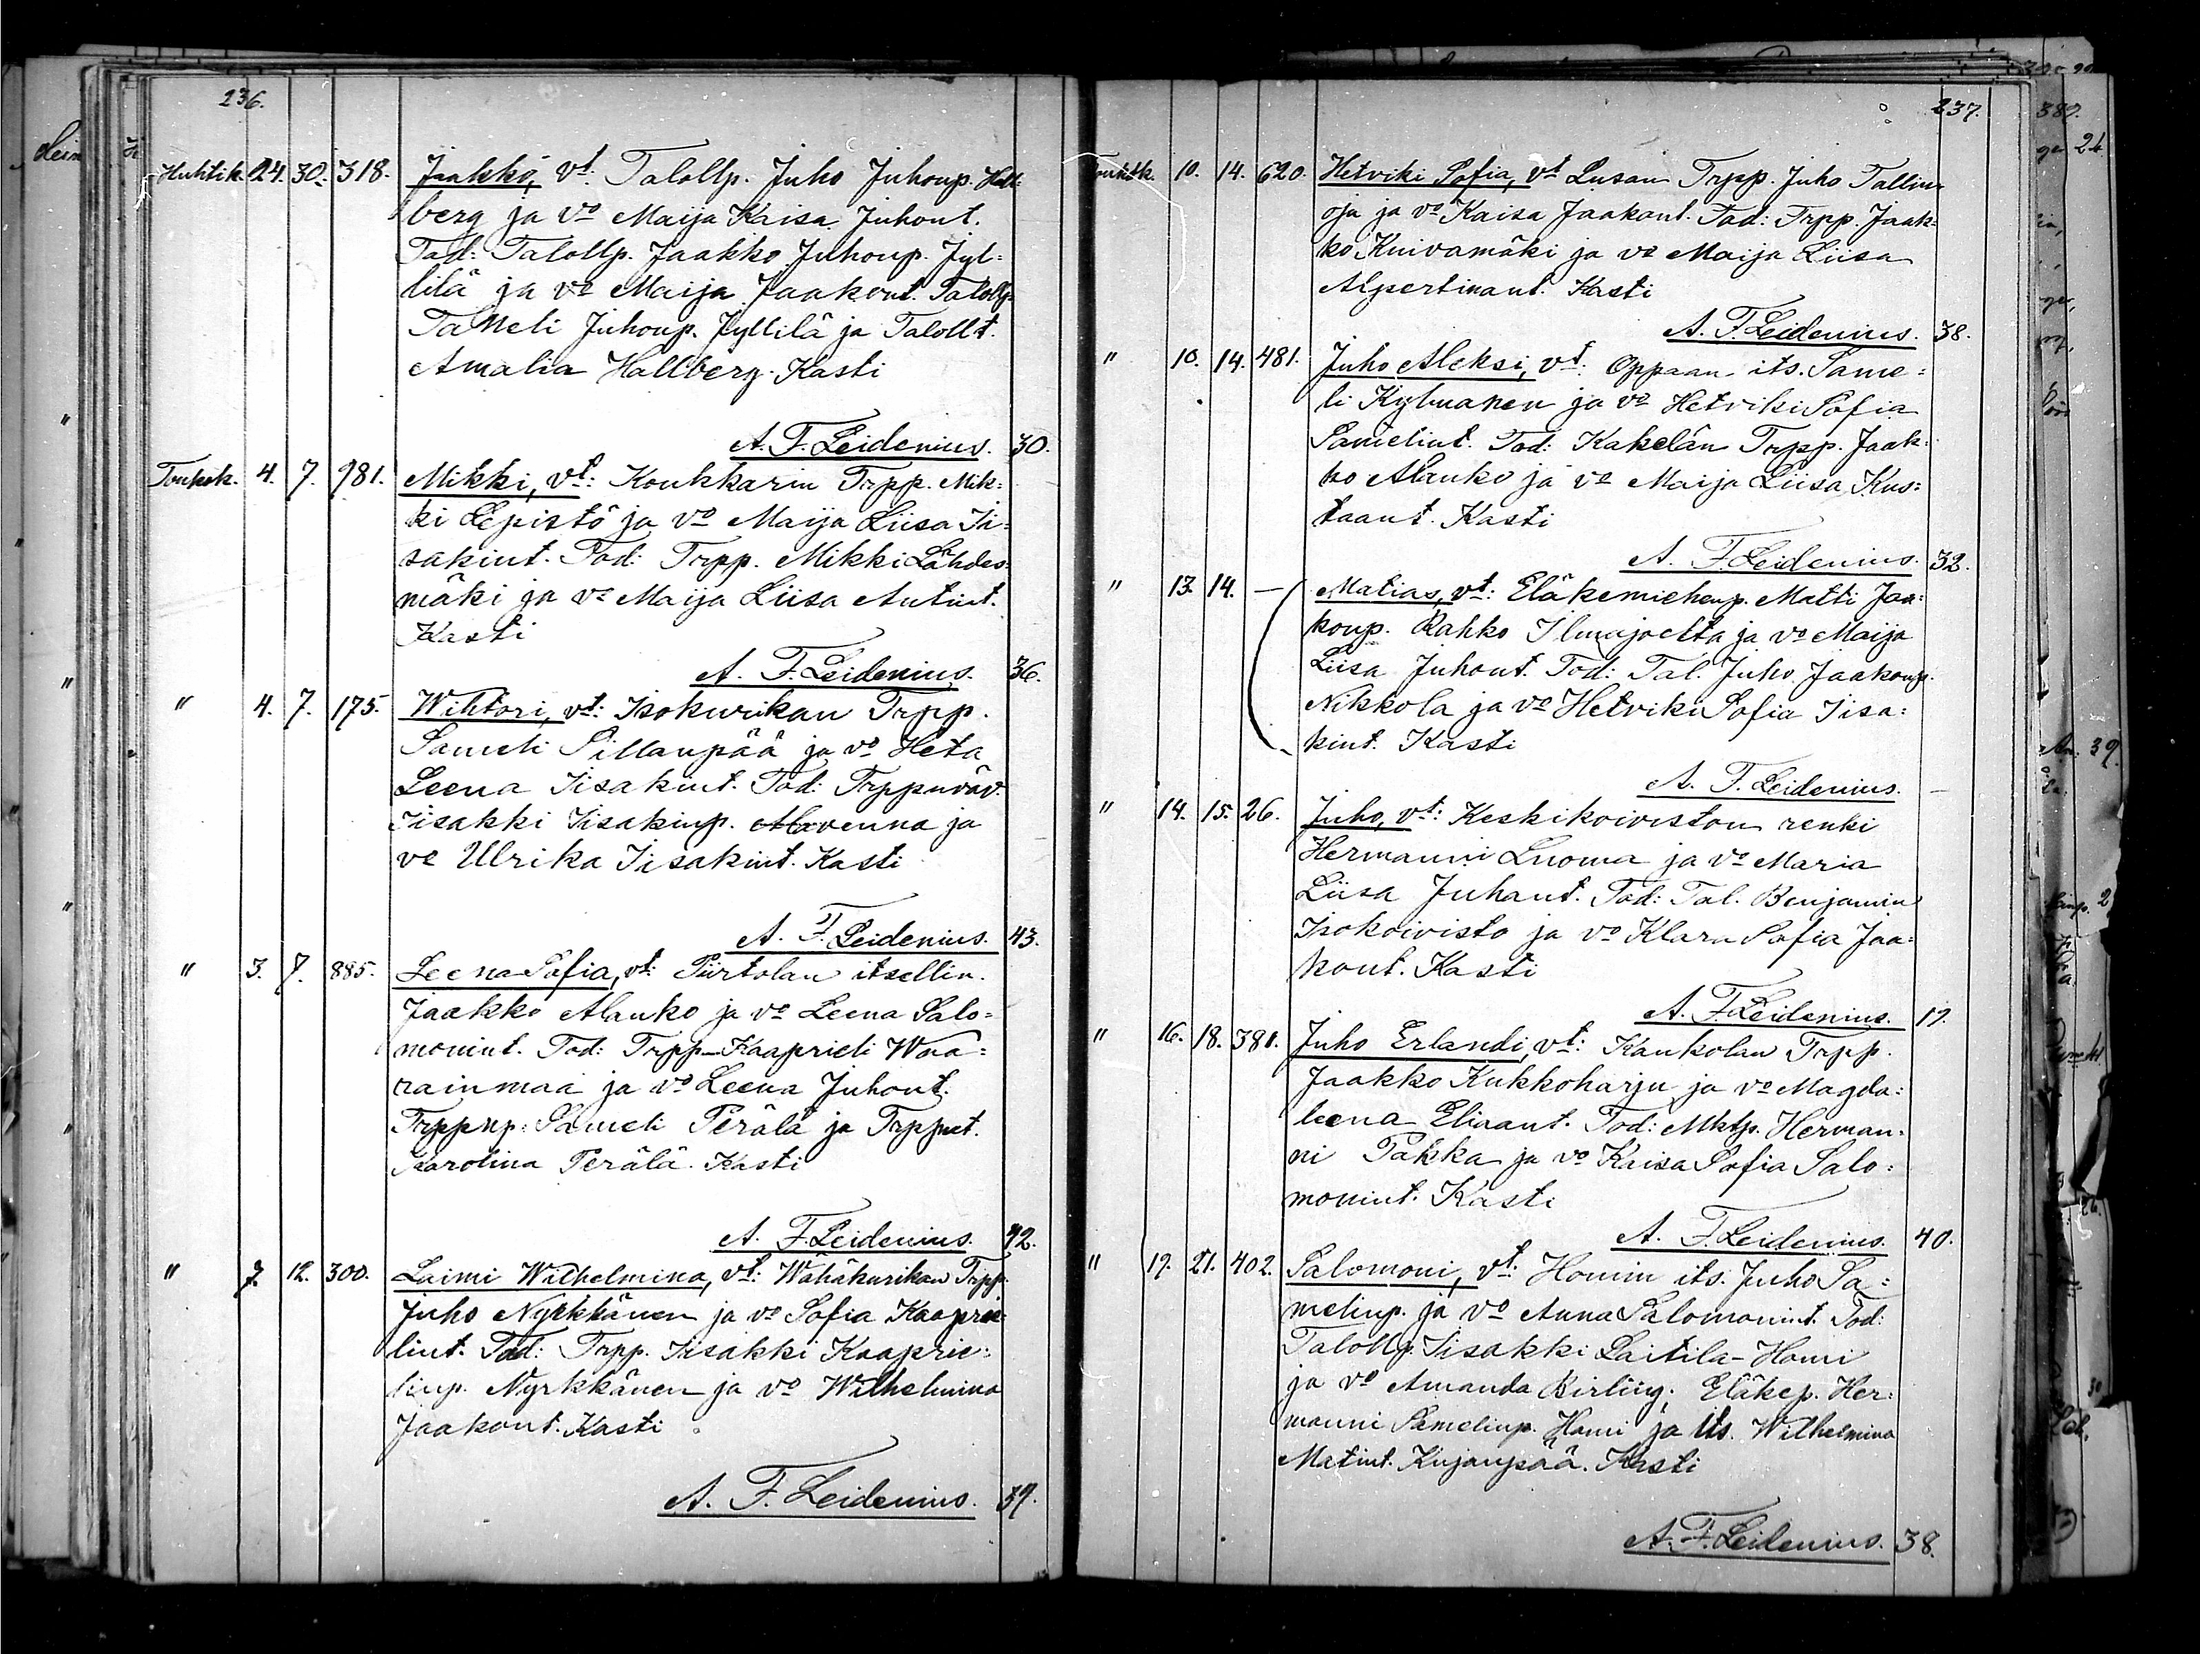 236.
Huhtik. 24. 30. 318. Jaakko, vt. Talollp. Juho Juhonp. Hall-
berg ja vo Maija Kaisa Juhont.
Tod: Talollp. Jaakko Juhonp. Jyl-
lilä ja vo Maija Jaakont. Talollp.
Taneli Juhonp. Jyllilä ja Talollt.
Amalia Hallberg. Kasti
A. F. Leidenius. 30.
Toukok. 4. 7. 981. Mikki, vt: Koukkarin Trpp. Mik-
ki Lepistö ja vo Maija Liisa Ii-
sakint. Tod: Trpp. Mikki Lähdes-
mäki ja vo Maija Liisa Antint.
Kasti
A. F. Leidenius. 36.
" 4. 7. 175. Wihtori, vt: Isokurikan Trpp.
Sameli Sillanpää ja vo Heta
Leena Iisakint. Tod: Trppnväv.
Iisakki Iisakinp. Alavenna ja
vo Ulrika Iisakint. Kasti
A. F. Leidenius. 43.
" 3. 7. 885. Leena Sofia, vt: Piirtolan itsellin.
Jaakko Alanko ja vo Leena Salo-
monint. Tod: Trpp. Kaaprieli Waa-
rainmaa ja vo Leena Juhont.
Trppnp. Sameli Perälä ja Trppnt.
Karolina Perälä. Kasti
A. F. Leidenius. 42.
" 7. 12. 300. Laimi Wilhelmina, vt: Wähäkurikan Trpp.
Juho Nyrkkänen ja vo Sofia Kaaprie-
lint. Tod: Trpp. Iisakki Kaaprie-
linp. Nyrkkänen ja vo Wilhelmina
Jaakont. Kasti
A. F. Leidenius. 39.
237.
Toukok. 10. 14. 620. Hetviki Sofia, vt Lusan Trpp. Juho Tallin-
oja ja vo Kaisa Jaakont. Tod: Trpp. Jaak-
ko Kuivamäki ja vo Maija Liisa
Alpertinant. Kasti
A. F. Leidenius. 38.
" 10. 14. 481. Juho Aleksi, vt: Oppaan its. Same-
li Kylmanen ja vo Hetviki Sofia
Samelint. Tod: Kakelän Trpp. Jaak-
ko Alanko ja vo Maija Liisa Kus-
taant. Kasti
A. F. Leidenius. 32.
" 13. 14. — Matias, vt: Eläkemiehenp. Matti Jaa-
konp. Rahko Ilmajoelta ja vo Maija
Liisa Juhont. Tod: Tal. Juho Jaakonp.
Nikkola ja vo Hetviki Sofia Iisa-
kint. Kasti
A. F. Leidenius. —
" 14. 15. 26. Juho, vt: Keskikoiviston renki
Hermanni Luoma ja vo Maria
Liisa Juhant. Tod: Tal. Benjamin
Isokoivisto ja vo Klara Sofia Jaa-
kont. Kasti
A. F. Leidenius. 19.
" 16. 18. 381. Juho Erlandi, vt: Kankolan Trpp.
Jaakko Kukkoharju ja vo Magda-
leena Eliaant. Tod: Mktp. Herman-
ni Pakka ja vo Kaisa Sofia Salo-
monint. Kasti
A. F. Leidenius. 40.
" 19. 21. 402. Salomoni, vt. Homin its. Juho Sa-
melinp. ja vo Anna Salomonint. Tod:
Talollp. Iisakki Laitila-Homi
ja vo Amanda Birling; Eläkep. Her-
manni Samelinp. Homi ja its. Wilhelmina
Matint. Kujanpää. Kasti
A. F. Leidenius. 38.